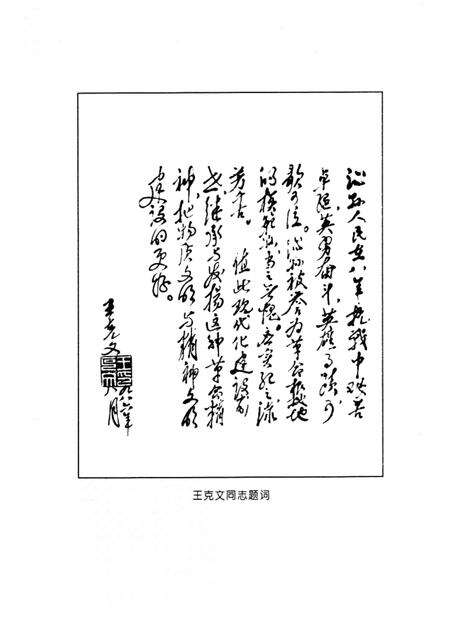 人民在八年抗战中艰苦
卓绝英勇奋斗,英雄事迹可
歌可泣。被誉为革命根据地
的模范县当之无愧。
值此现代化建设
继承与发扬这种革命精
神,把物质文明与精神文明
建设的更好。
王克文
一九八六年
八月
王克文同志题词